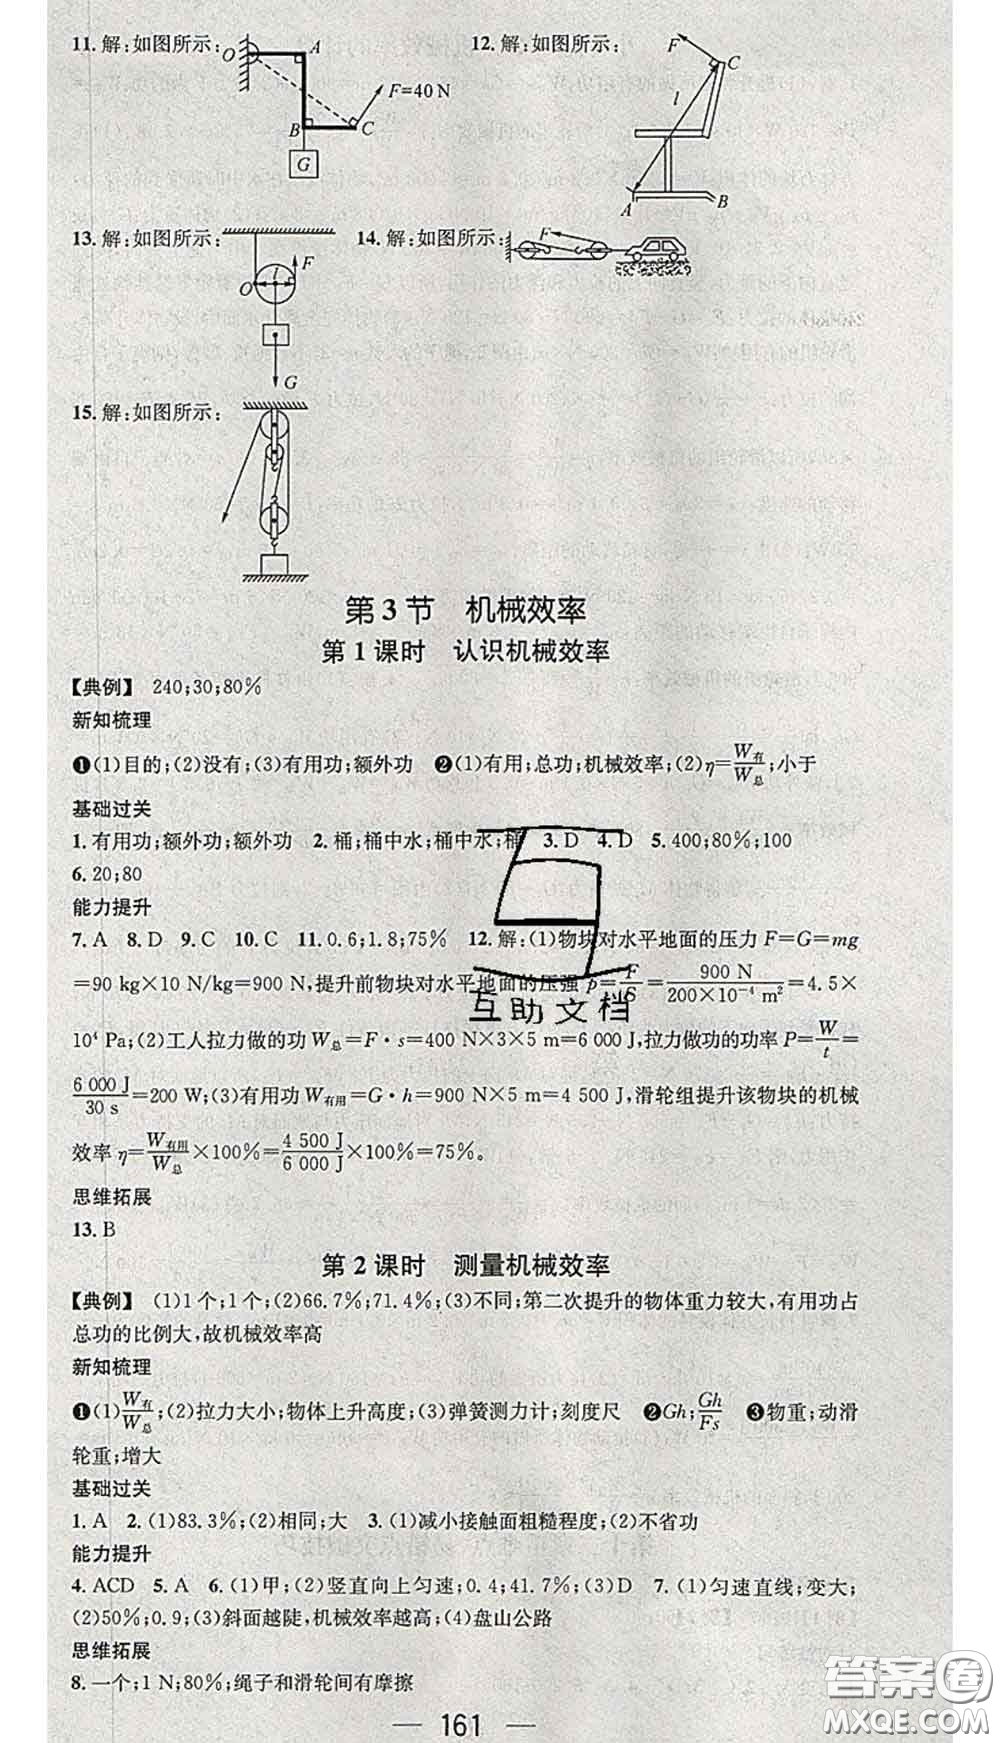 11. 解:如图所示:
O A B C G F=40 N
12. 解:如图所示:
F C l A B
13. 解:如图所示:
O l F G
14. 解:如图所示:
F
15. 解:如图所示:
第 3 节　机械效率
第 1 课时　认识机械效率
【典例】 240;30;80%
新知梳理
❶(1)目的;(2)没有;(3)有用功;额外功 ❷(1)有用;总功;机械效率;(2)η=W有/W总;小于
基础过关
1. 有用功;额外功;额外功 2. 桶;桶中水;桶中水;桶 3. D 4. D 5. 400;80%;100
6. 20;80
能力提升
7. A 8. D 9. C 10. C 11. 0.6;1.8;75% 12. 解:(1)物块对水平地面的压力 F=G=mg
=90 kg×10 N/kg=900 N,提升前物块对水平地面的压强 p=F/S=900 N/(200×10⁻⁴ m²)=4.5×
10⁴ Pa;(2)工人拉力做的功 W总=F·s=400 N×3×5 m=6 000 J,拉力做功的功率 P=W/t=
6 000 J/30 s=200 W;(3)有用功 W有用=G·h=900 N×5 m=4 500 J,滑轮组提升该物块的机械
效率 η=W有用/W总×100%=4 500 J/6 000 J×100%=75%。
思维拓展
13. B
第 2 课时　测量机械效率
【典例】 (1)1 个;1 个;(2)66.7%;71.4%;(3)不同;第二次提升的物体重力较大,有用功占
总功的比例大,故机械效率高
新知梳理
❶(1)W有/W总;(2)拉力大小;物体上升高度;(3)弹簧测力计;刻度尺 ❷Gh;Gh/Fs ❸物重;动滑
轮重;增大
基础过关
1. A 2. (1)83.3%;(2)相同;大 3. (1)减小接触面粗糙程度;(2)不省功
能力提升
4. ACD 5. A 6. (1)甲;(2)竖直向上匀速;0.4;41.7%;(3)D 7. (1)匀速直线;变大;
(2)50%;0.9;(3)斜面越陡,机械效率越高;(4)盘山公路
思维拓展
8. 一个;1 N;80%;绳子和滑轮间有摩擦
161
互助文档
答案圈
MXQE.COM